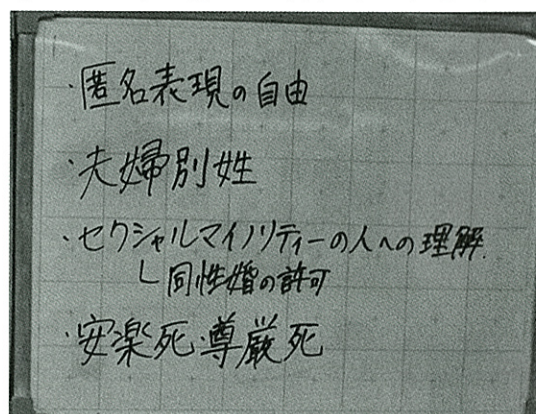 ・匿名表現の自由
・夫婦別姓
・セクシャルマイノリティーの人への理解.
└同性婚の許可
・安楽死・尊厳死